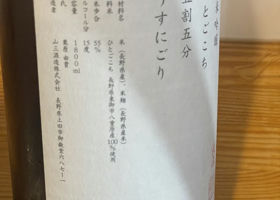 吟醸
とごこち
五割五分
うすにごり
材料名 米(長野県産)、米麹(長野県産米)
ひとごこち 長野県東御市八重原産100%使用
米歩合 55%
ルコール分 15度
容量 1800ml
栗原由貴
造者 山三酒造株式会社 長野県上田市御嶽堂六八七ー一